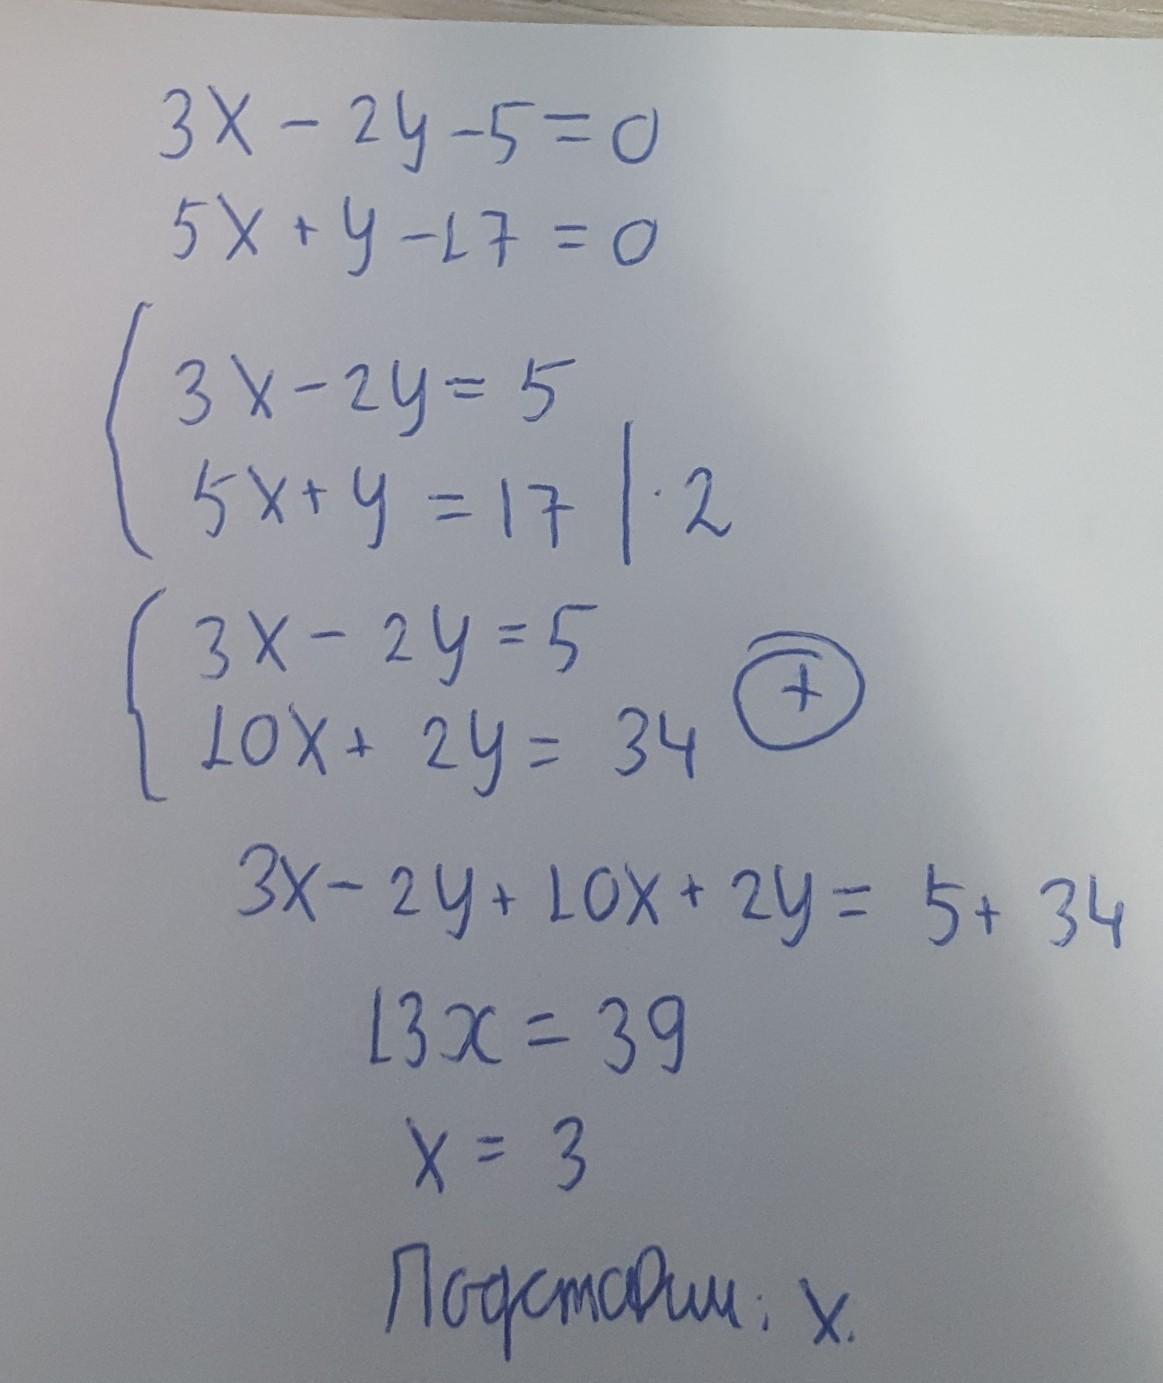 3x - 2y - 5 = 0
5x + y - 17 = 0
3x - 2y = 5
5x + y = 17 | · 2
3x - 2y = 5
+
10x + 2y = 34
3x - 2y + 10x + 2y = 5 + 34
13x = 39
x = 3
Подставим: x.